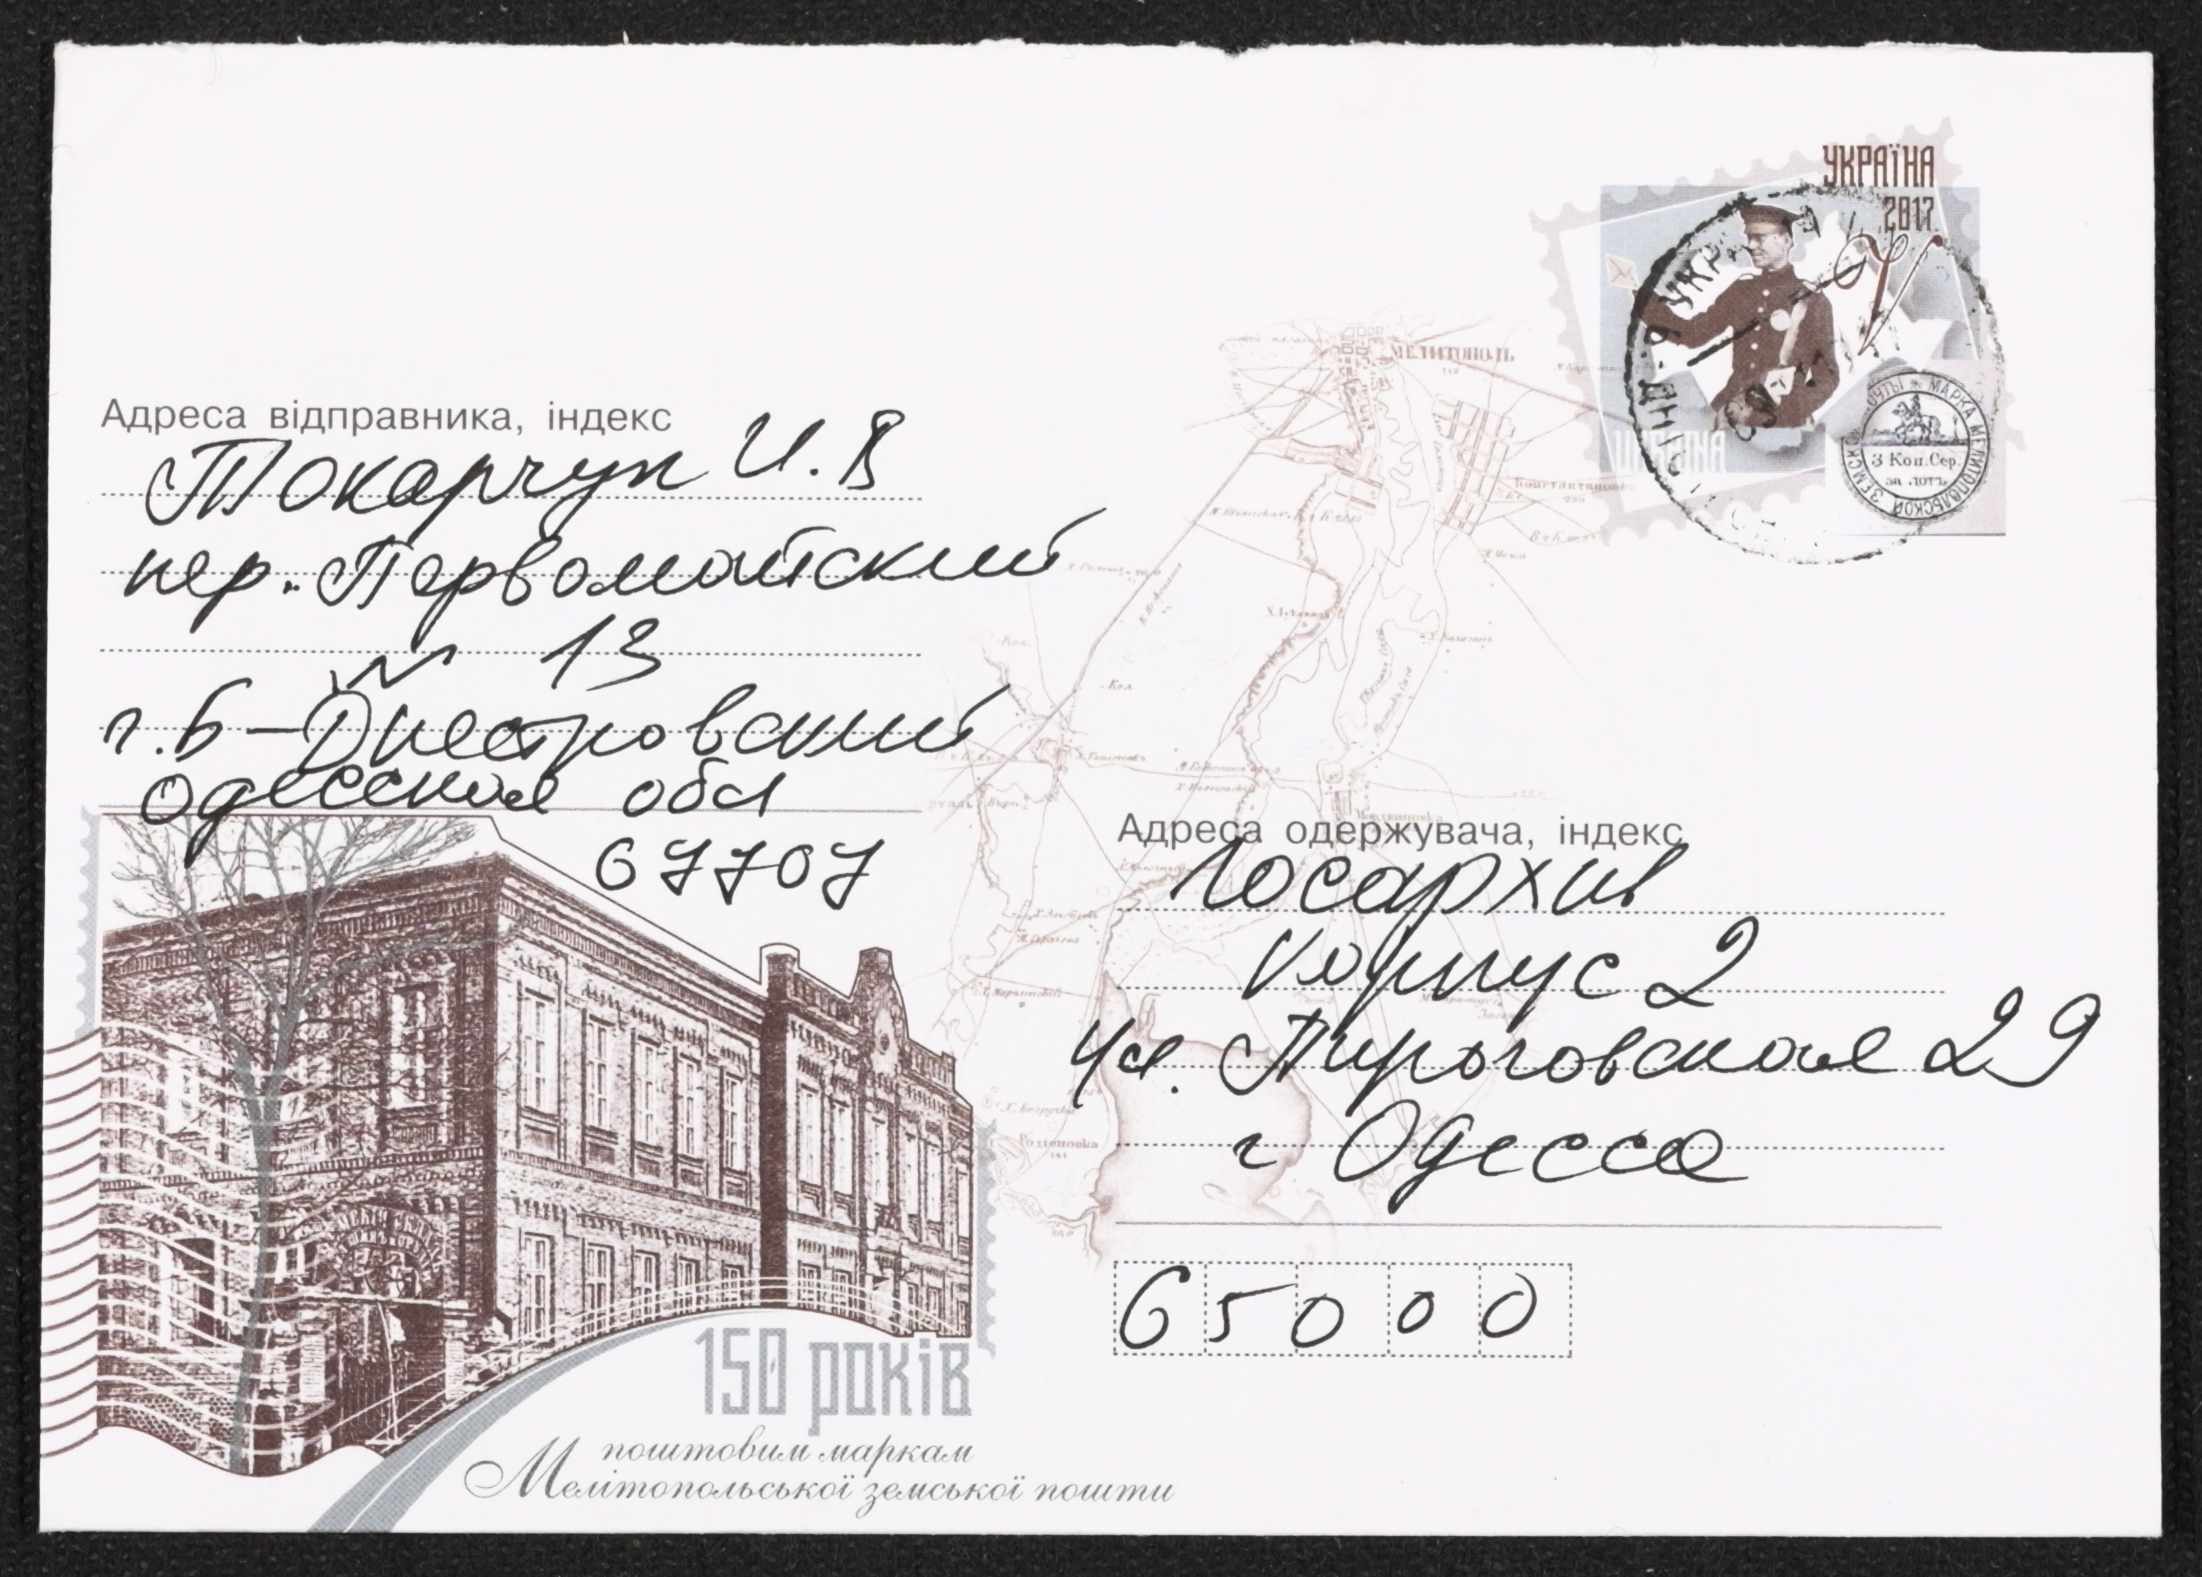 УКРАЇНА
2017
V
МЕЛИТОПОЛЬ
3 Коп. Сер.
за лотъ
МАРКА МЕЛИТОПОЛЬСКОЙ ЗЕМСКОЙ ПОЧТЫ
Адреса відправника, індекс
Токарчук И. В
пер. Первомайский
13
г. Б-Днестровский
Одесская обл
67707
Адреса одержувача, індекс
Госархив
Корпус 2
ул. Пироговская 29
г Одесса
65000
150 років
поштовим маркам
Мелітопольської земської пошти